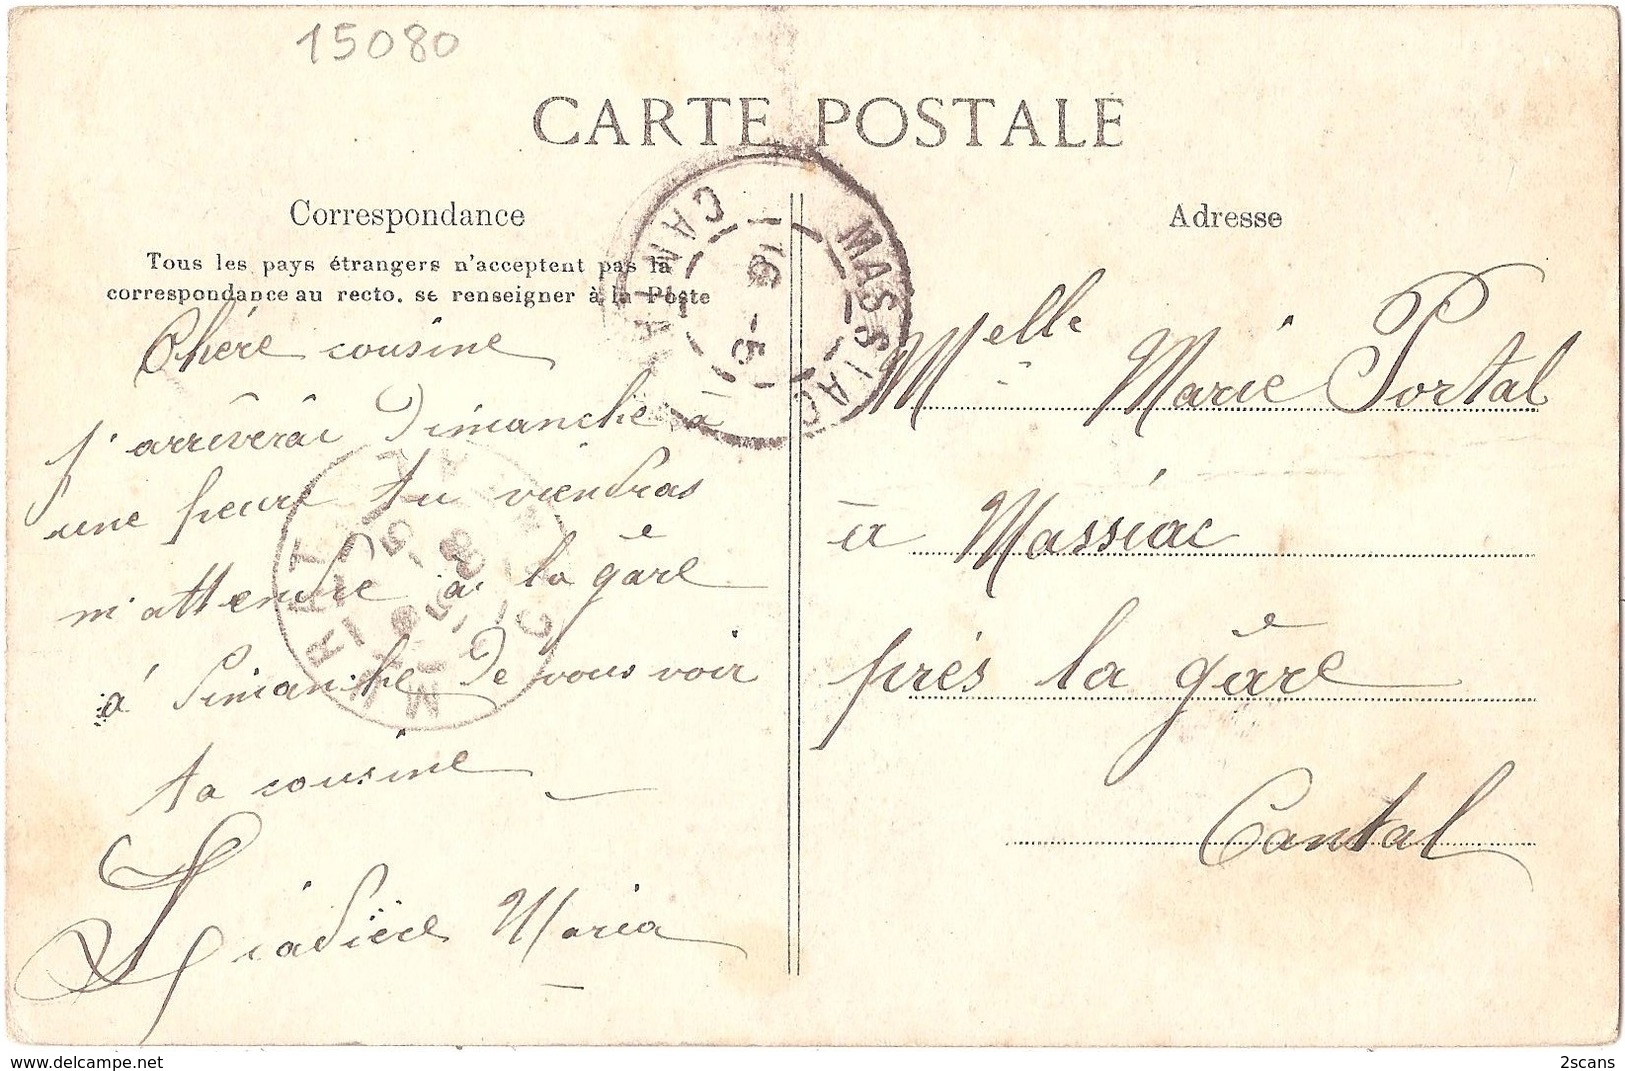 15080
CARTE POSTALE
Correspondance
Tous les pays étrangers n'acceptent pas la
correspondance au recto. se renseigner à la Poste
Chére cousine
j'arrêverâi Dimanche à
une heure tu viendras
m'attendre a la gâre
á Dimanche De vous voir
ta cousine
Maria
MASSIAC
CANTAL
16 - 5
MURAT
Adresse
Melle Marie Portal
à Massiac
prés la gâre
Cantal
www.delcampe.net
2scans